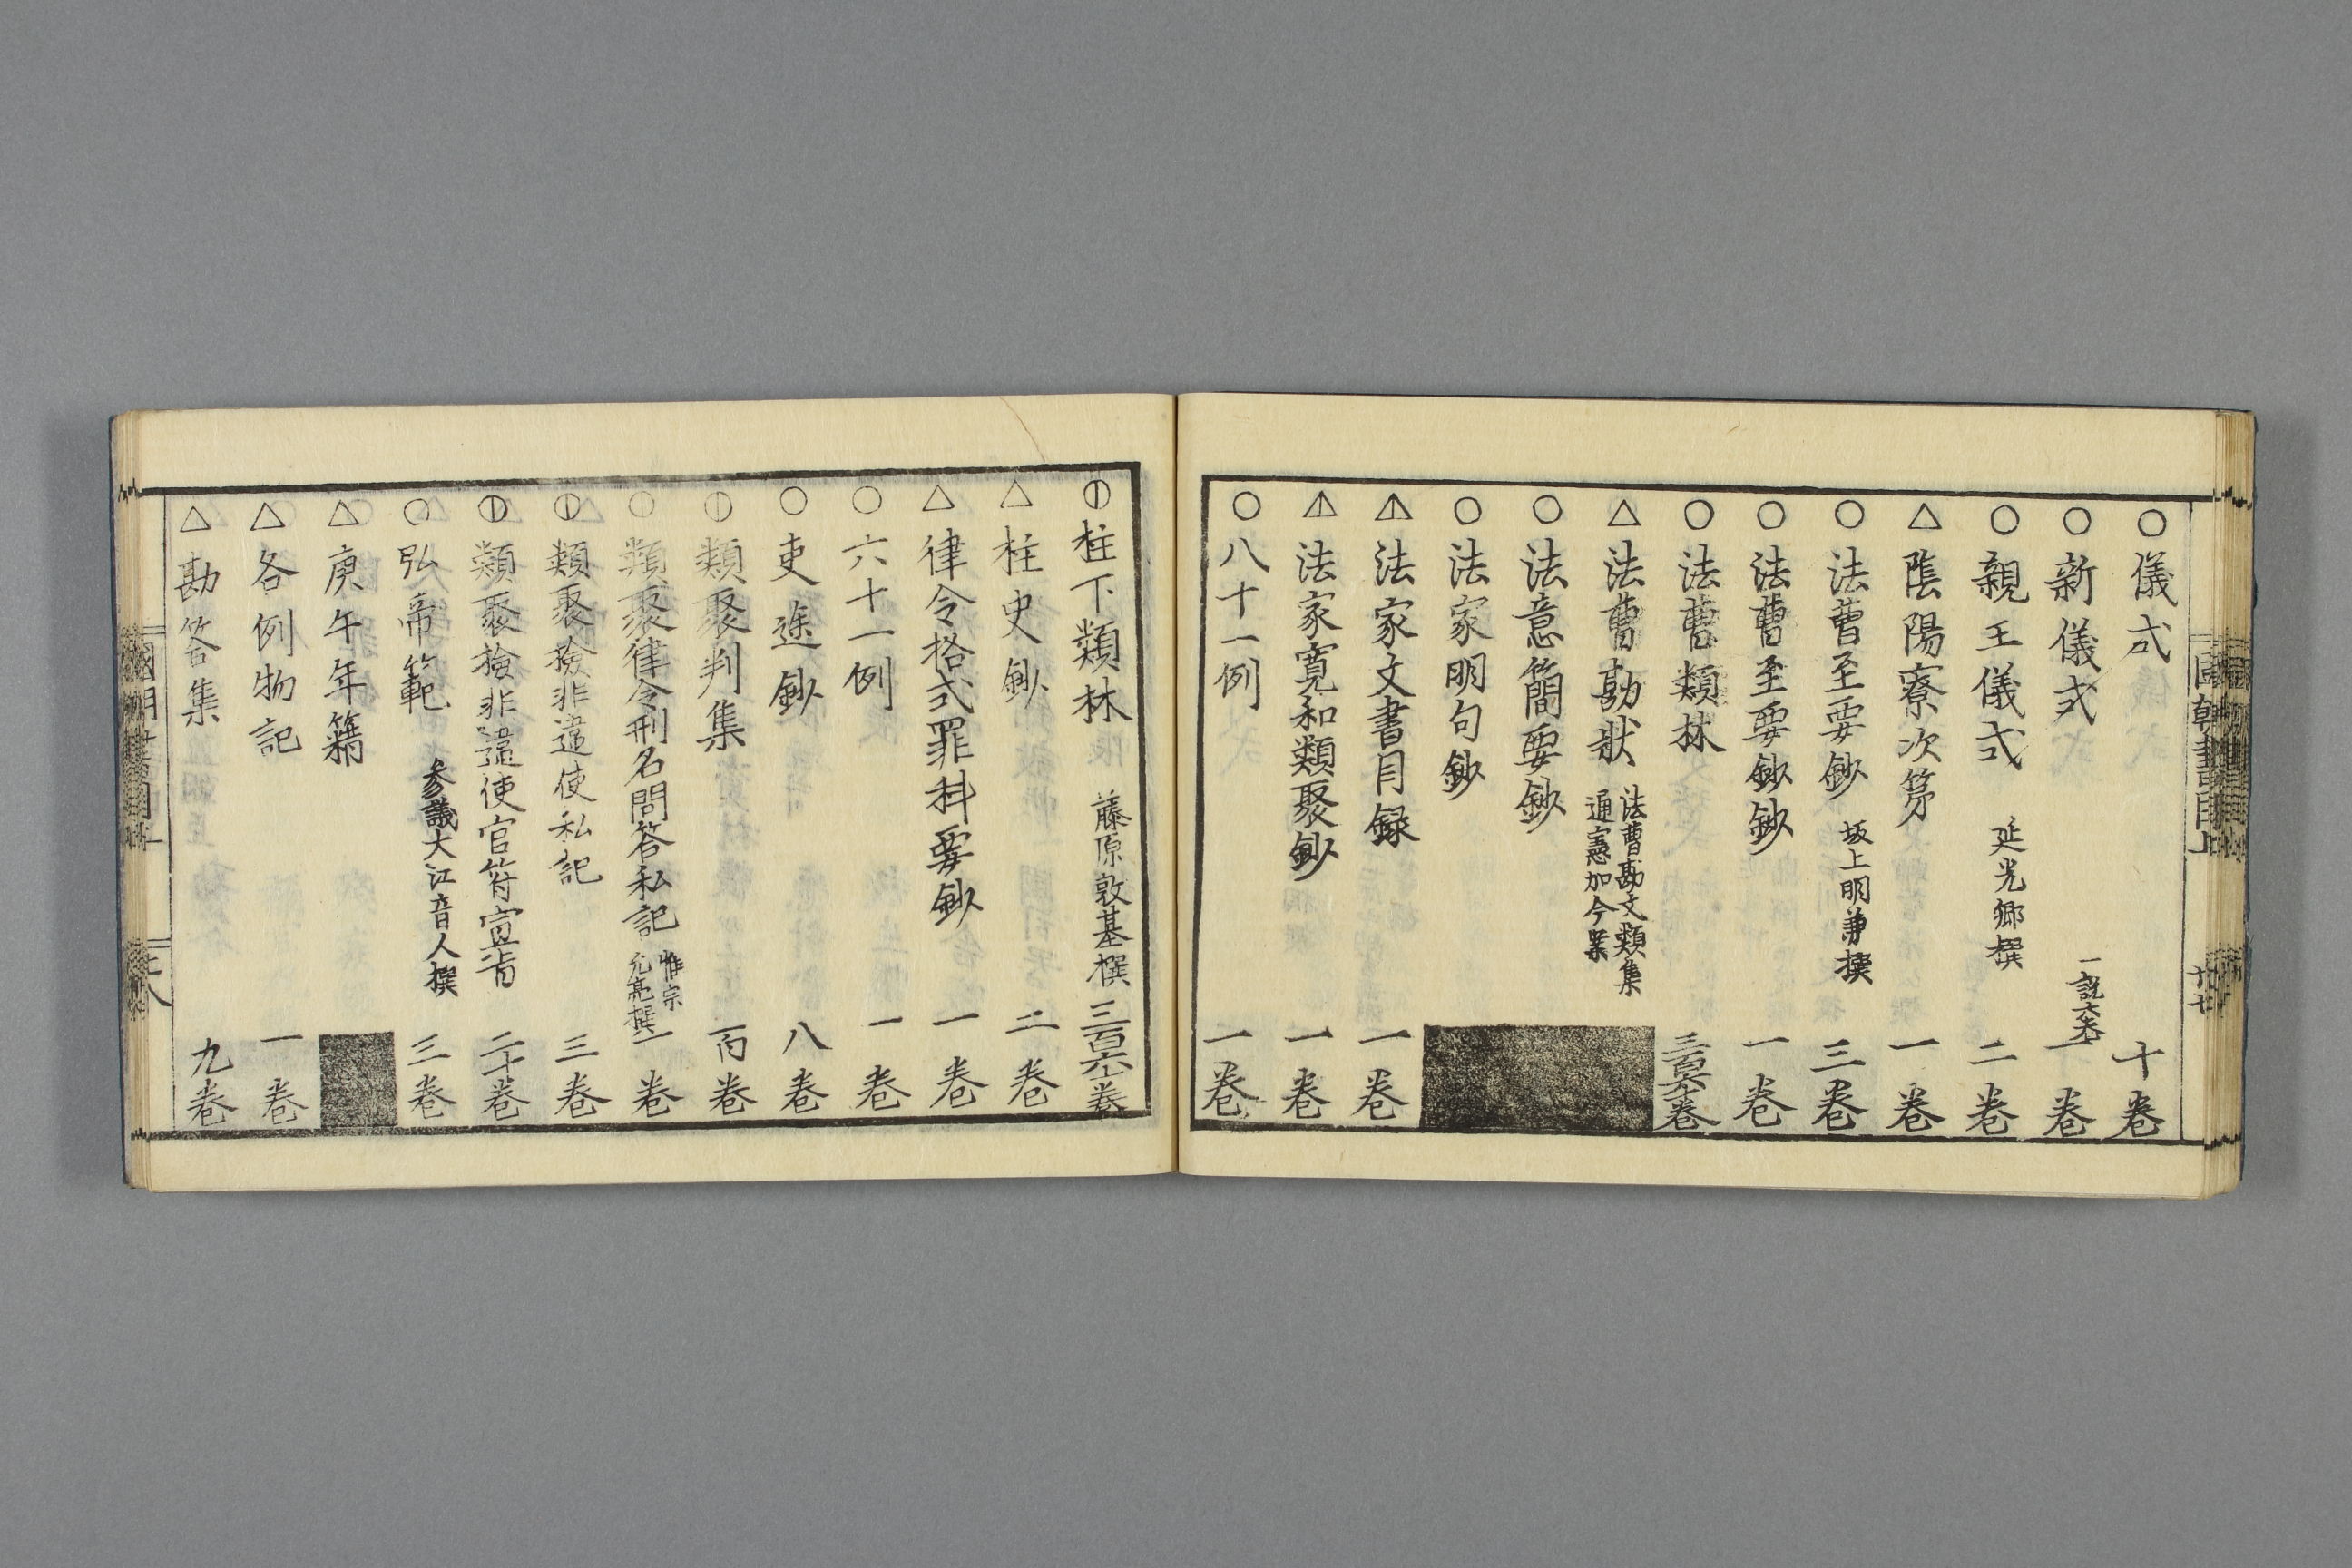 ○儀式 十卷
○新儀式 一説六卷 一卷
○親王儀式 延光郷撰 二卷
△陰陽寮次第 一卷
○法曹至要鈔 坂上明兼撰 三卷
○法曹至要鈔鈔 一卷
○法曹類林 三百六十卷
△法曹勘状 法曹勘文類集
通憲加今案
○法意簡要鈔
○法家明句鈔
法家文書目録 一卷
法家寛和類聚鈔 一卷
○八十一例 一卷
柱下類林 藤原敦基撰 三百六十卷
△柱史鈔 二卷
△律令格式罪科要鈔 一卷
○六十一例 一卷
○吏途鈔 八卷
類聚判集 百卷
○類聚律令刑名問答私記 惟宗
允亮撰 一卷
類聚検非違使私記 三卷
類聚検非違使官符宣旨 二十卷
○弘帝範 参議大江音人撰 三卷
△庚午年籍
△各例物記 一卷
△勘答集 九卷